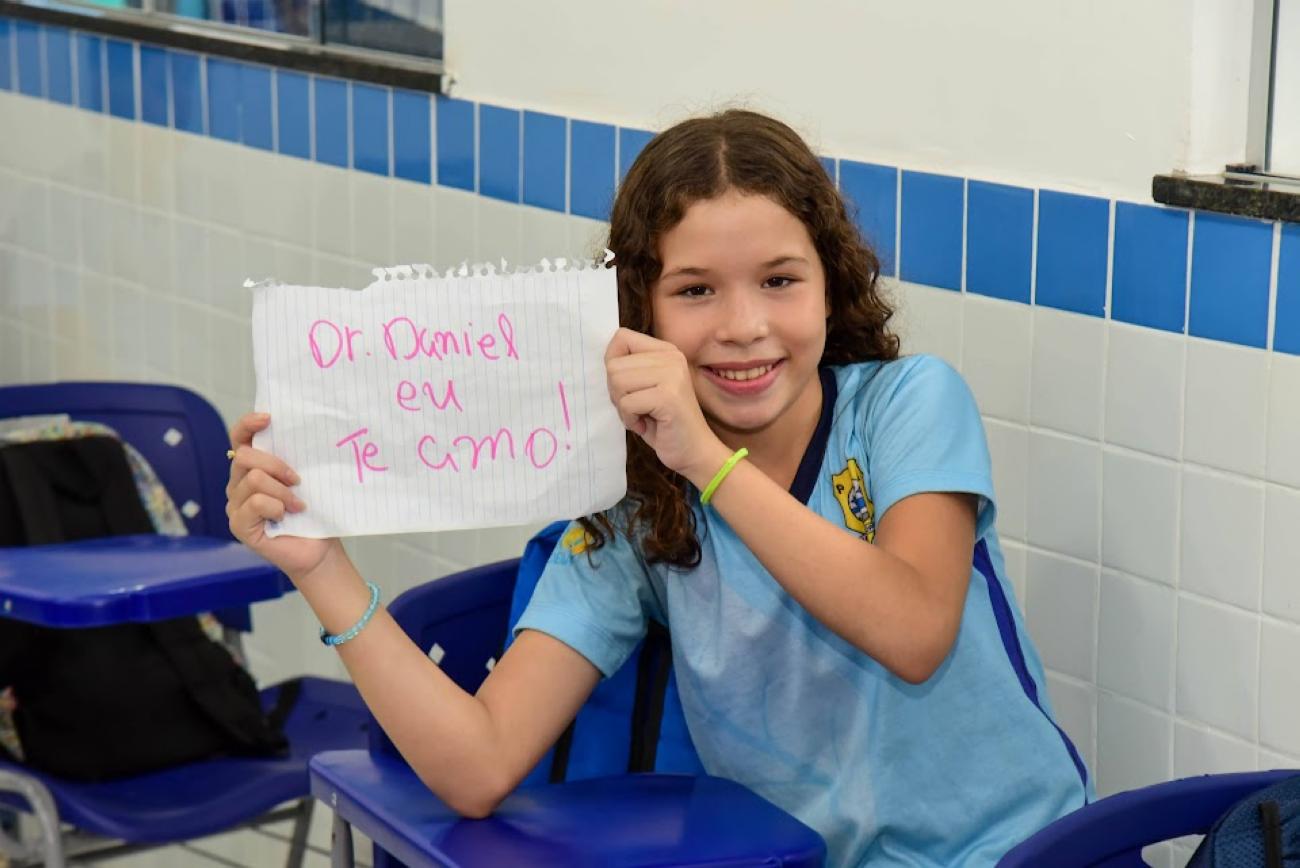 Dr. Daniel
eu
Te amo!